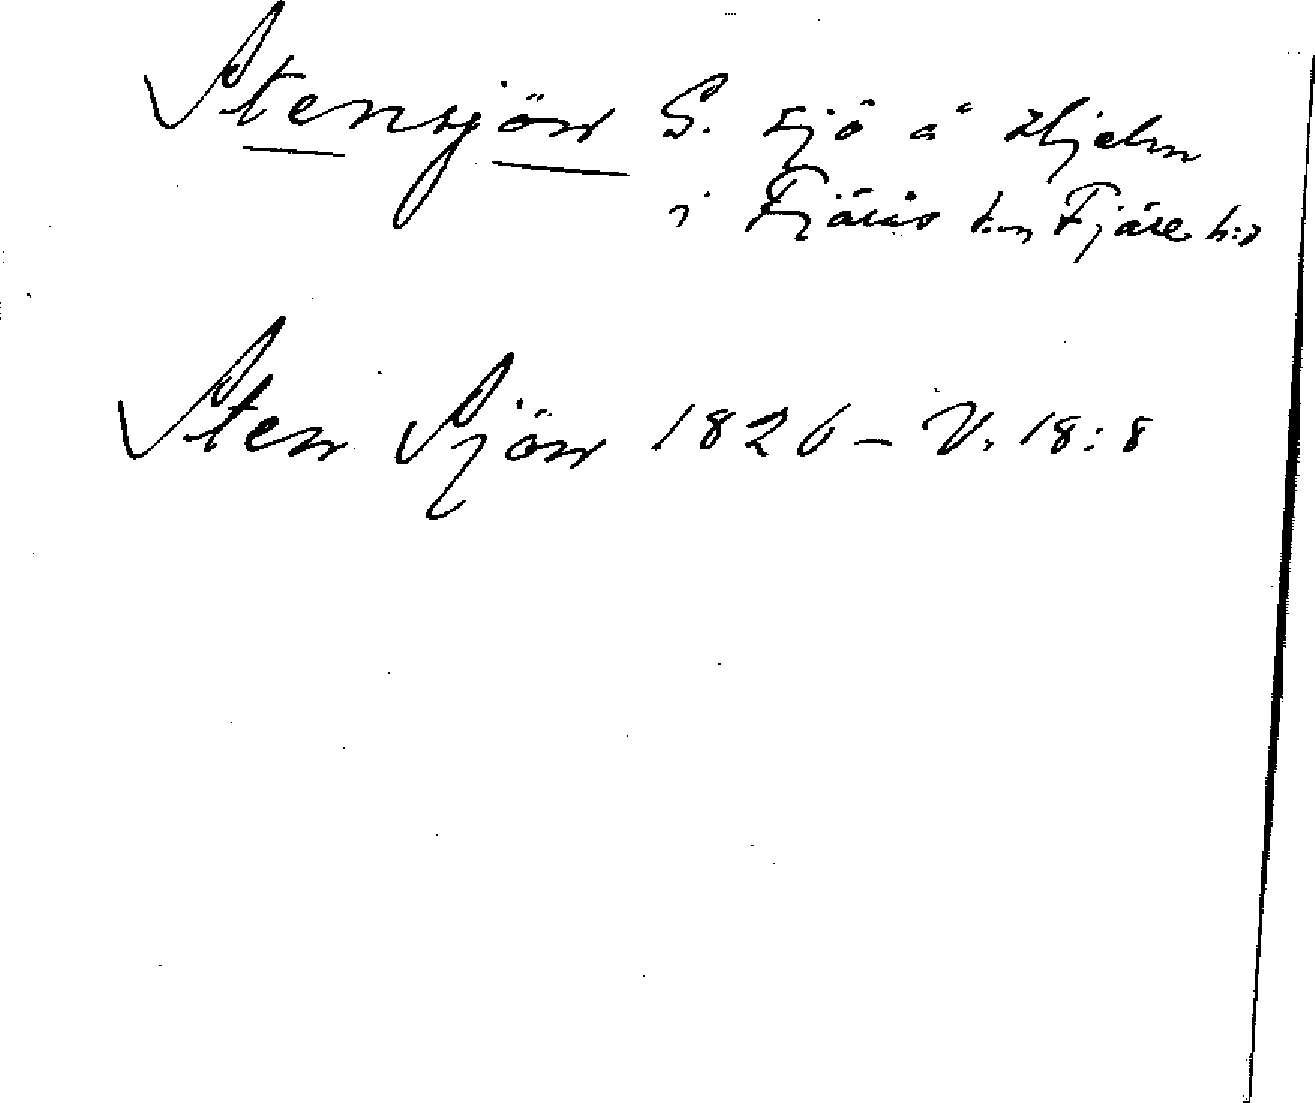 Stensjön S. sjö å Hjelm
i Fjärås sn, Fjäre h:d
Sten Sjön 1826 – V. 18:8